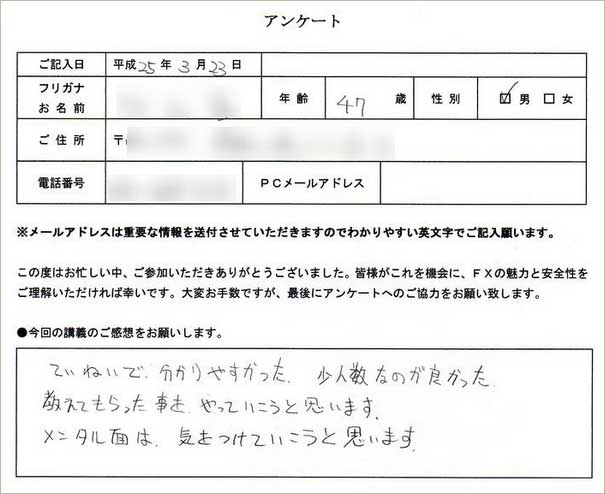 アンケート
ご記入日 平成25年3月23日
フリガナ
お名前 年齢 47 歳 性別 ☑男 □女
ご住所 〒
電話番号 PCメールアドレス
※メールアドレスは重要な情報を送付させていただきますのでわかりやすい英文字でご記入願います。
この度はお忙しい中、ご参加いただきありがとうございました。皆様がこれを機会に、FXの魅力と安全性を
ご理解いただければ幸いです。大変お手数ですが、最後にアンケートへのご協力をお願い致します。
●今回の講義のご感想をお願いします。
ていねいで、分かりやすかった。少人数なのが良かった
教えてもらった事を、やっていこうと思います。
メンタル面は、気をつけていこうと思います。